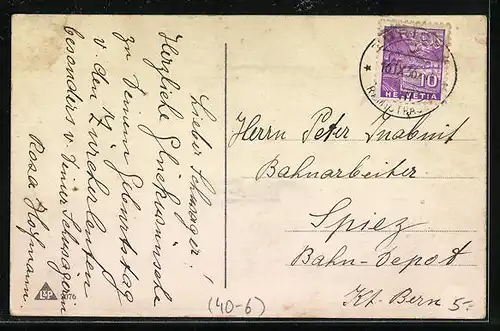 Lieber Schwager!
Herzliche Glückwünsche
zu Deinem Geburtstag
v. den Zürcherleuten
besonders v. Deiner Schwägerin
Rosa Hofmann.
Herrn Peter Inabnit
Bahnarbeiter
Spiez
Bahn-Depot
Kt. Bern
5-
(40-6)
10
HELVETIA
L&P